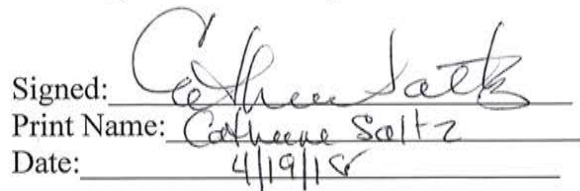 Signed: Catherine Saltz
Print Name: Catherine Saltz
Date: 4/19/18